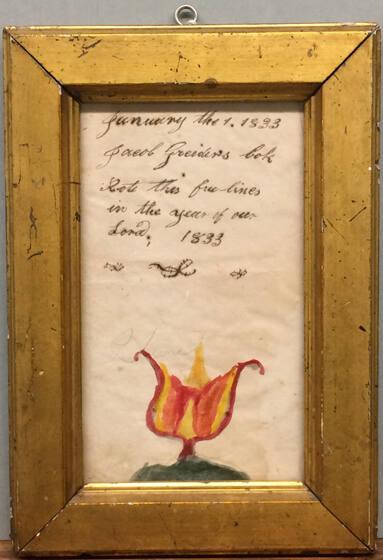 January the 1. 1833
Jacob Greiders bok
Rote this fue lines
in the year of our
Lord; 1833